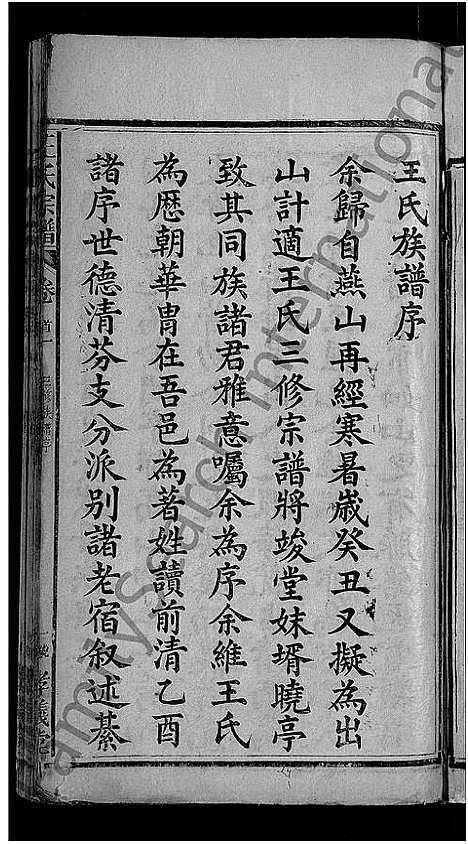 王氏族譜序
余歸自燕山再經寒暑歲癸丑又擬為出
山計適王氏三修宗譜將竣堂妹壻曉亭
致其同族諸君雅意囑余為序余維王氏
為歷朝華胄在吾邑為著姓讀前清乙酉
諸序世德清芬支分派別諸老宿叙述綦
王氏宗譜 卷首一 三修族譜序 孝義堂
FamilySearch International